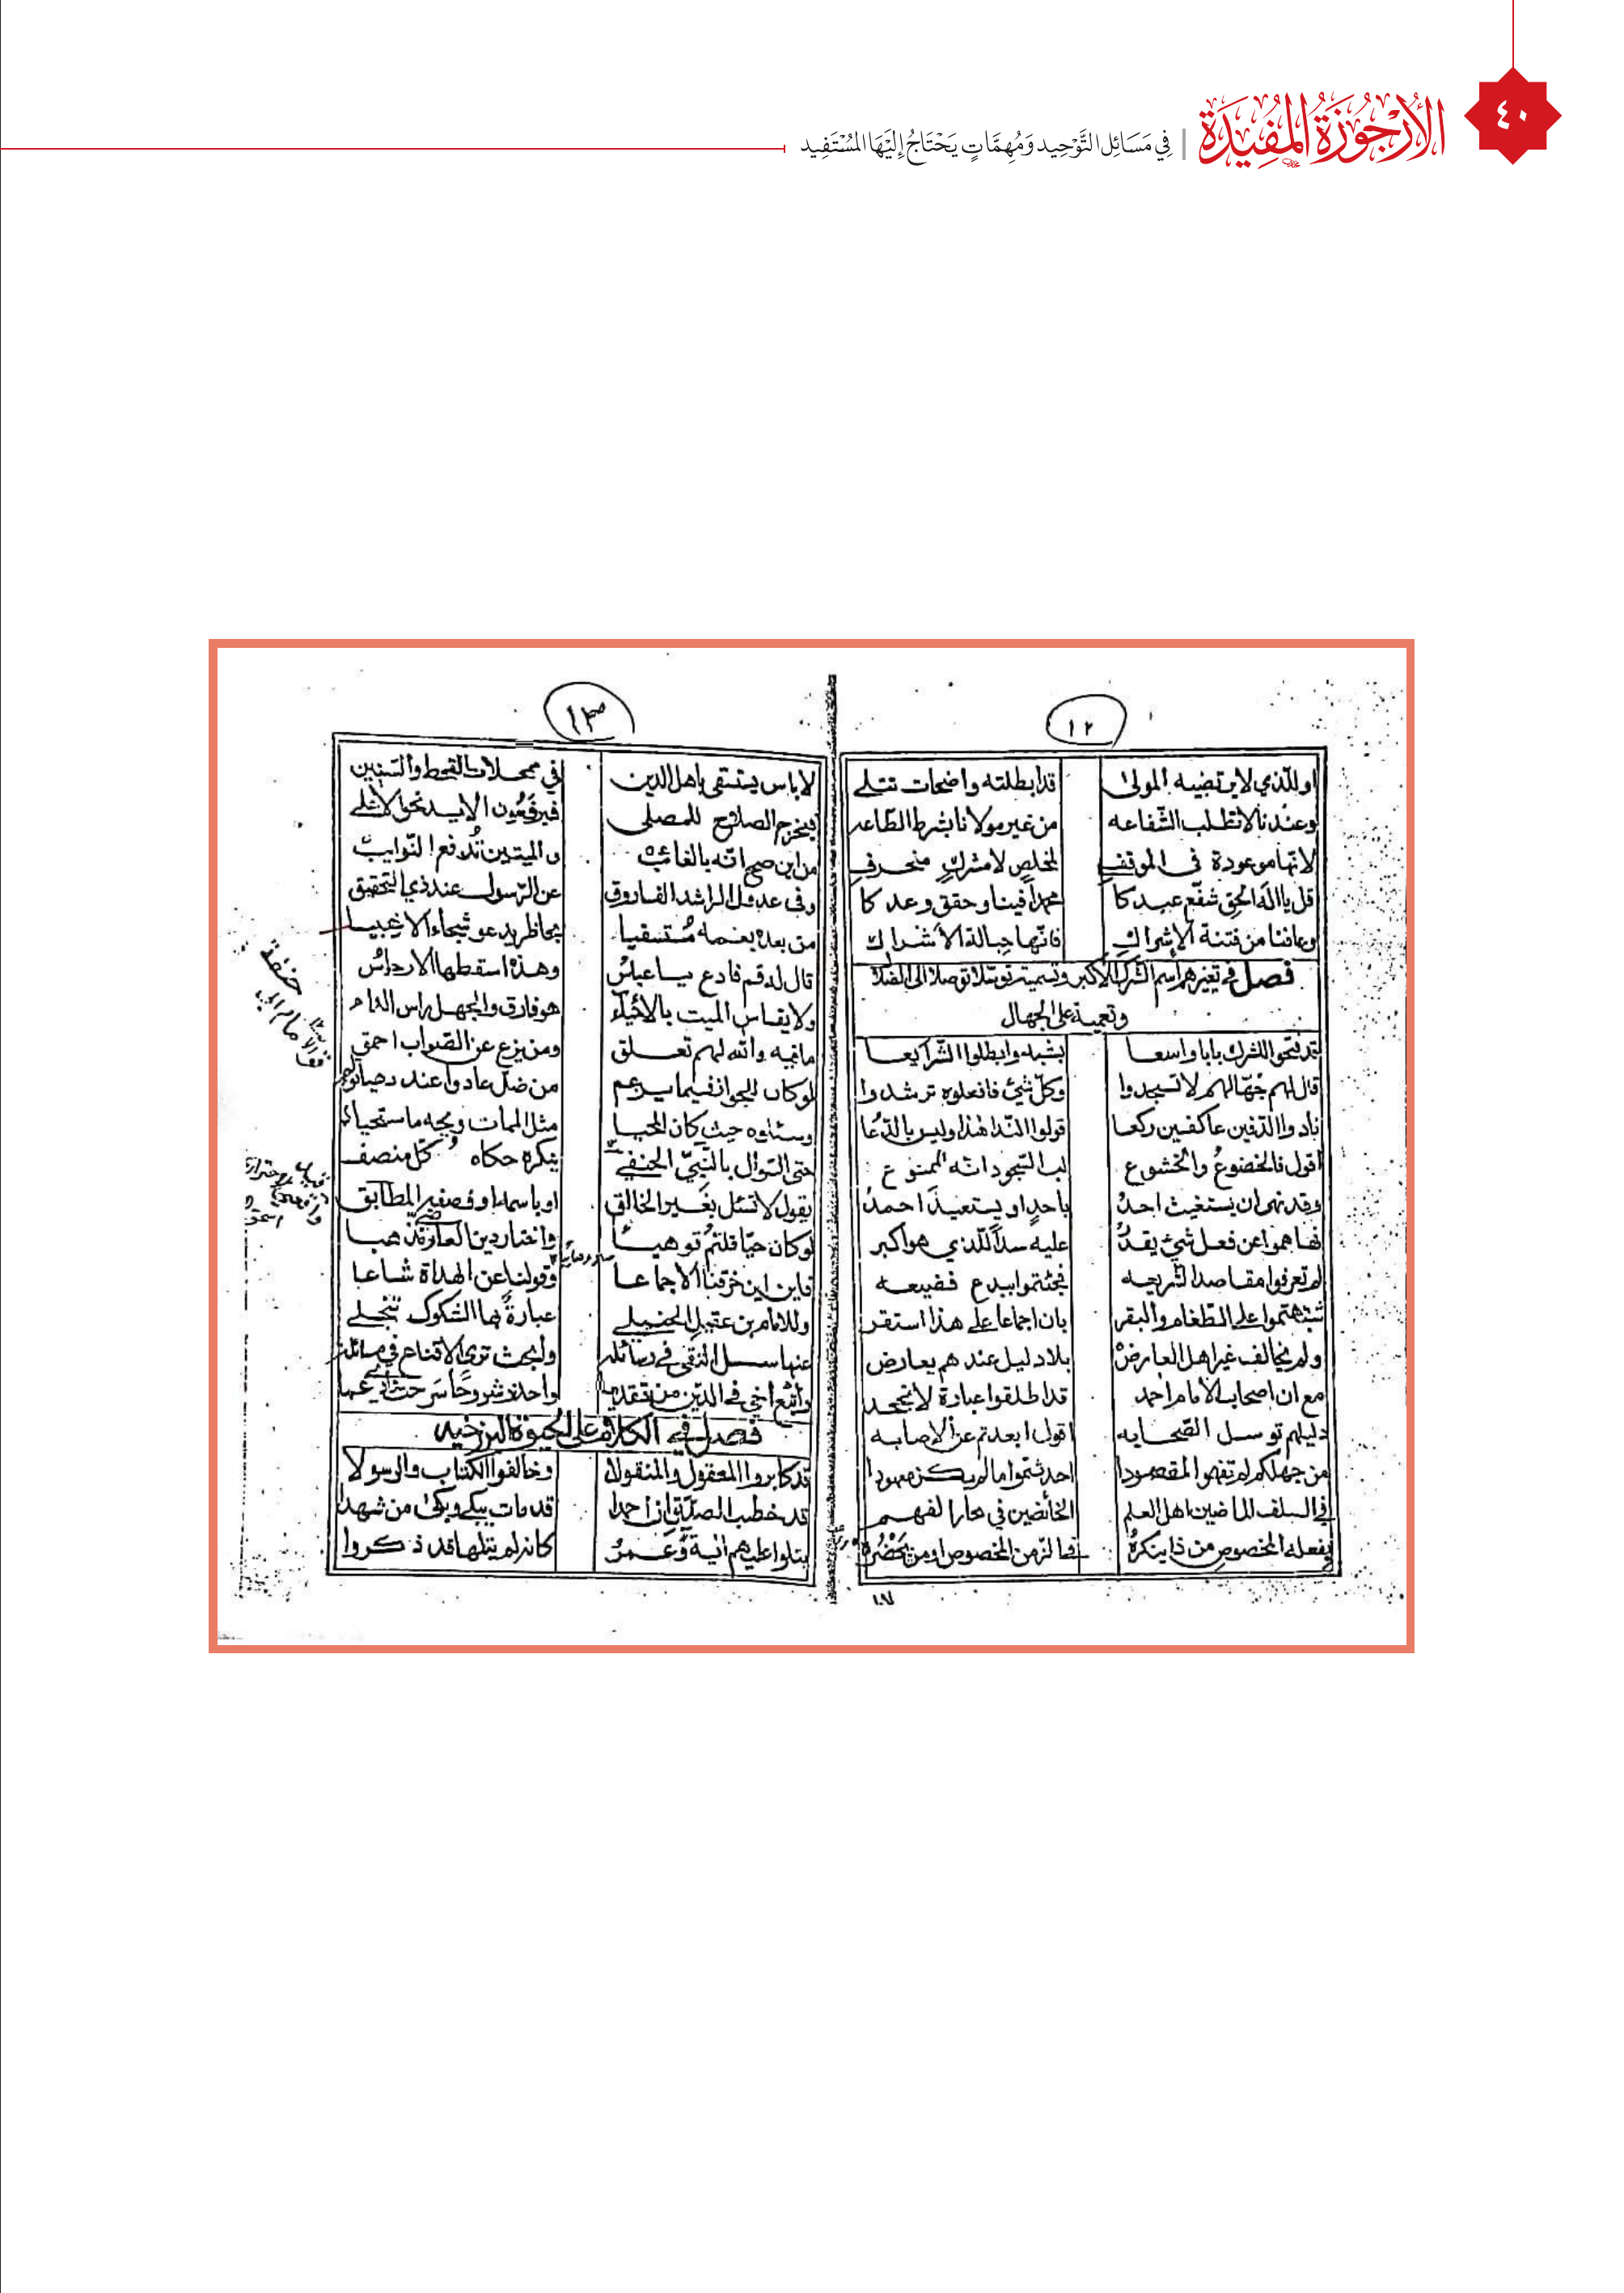 ٤٠
الأُرْجُوزَةُ المُفِيدَة | فِي مَسَائِل التَّوْحِيد وَمُهِمَّاتٍ يَحْتَاجُ إِلَيْهَا المُسْتَفِيد
١٢
او للذي لا يرتضيه المولى قد ابطلته واضحات تتلى
وعندنا لا تطلب الشفاعه من غير مولانا بشرط الطاعه
لانها موعودة في الموقف لمخلص لا مشرك منحرف
قل يا اله الحق شفع عبدكا محمدا فينا وحقق وعدكا
وعافنا من فتنة الإشراك فانها حبالة الأشراك
فصل في تغييرهم اسم الشرك الاكبر وتسميته توسلا توصلا الى الضلال
وتعمية على الجهال
لقد فتحوا للشرك بابا واسعا بشبه وابطلوا الشرايعا
قال لهم جهالهم لا تسجدوا وكل شيئ فافعلوه ترشدوا
نادوا الدفين عاكفين ركعا قولوا الندا هذا وليس بالدعا
اقول فالخضوع والخشوع لب السجود انه الممنوع
وقد نهى ان يستغيث احد باحد او يستعيذ احمد
لم تعرفوا مقاصد الشريعه فجئتموا ببدع فضيعه
شبهتموا على الطغام والبقر بان اجماعا على هذا استقر
ولم يخالف غير اهل العارض بلا دليل عندهم يعارض
مع ان اصحاب الامام احمد قد اطلقوا عبارة لا تجحد
دليلهم توسل الصحابه اقول ابعدتم عن الإصابه
من جهلكم لم تفهموا المقصودا احدثتموا ما لم يكن معهودا
في السلف الماضين اهل العلم الخائضين في بحار الفهم
بفعله المخصوص من ذا ينكره في الزمن المخصوص او من يحضره
١٣
لا باس يستسقى باهل الدين في محلات القحط والسنين
فيخرج الصلاح للمصلى فيرفعون الايد نحو الاعلى
من اين صح انه بالغائب والميتين تدفع النوايب
وفي عدول الراشد الفاروق عن الرسول عند ذي التحقيق
من بعده بعمه مستسقيا
قال له قم فادع يا عباس وهذه اسقطها الارداس
ولا يقاس الميت بالأحياء هو فارق والجهل راس الداء
ما فيه والله لهم تعلق ومن يزغ عن الصواب احمق
لو كان الجواز فيما يزعم
حتى السوال بالنبي الحنفي ينكره حكاه كل منصف
يقول لا تسئل بغير الخالق او باسمه او وصفه المطابق
لو كان حيا قلتم توهبا واختار دين العارض مذهبا
فاين اين خرقنا الاجماعا وقولنا عن الهداة شاعا
وللامام بن عقيل الحنبلي عبارة بها الشكوك تنجلي
عنها سل النقي في رسائله وابحث ترى الاقناع في مسائله
فصل في الكلام على الحيوة البرزخيه
قد كابروا المعقول والمنقولا وخالفوا الكتاب والرسولا
قد خطب الصديق ان احمدا قد مات يبكي وبكى من شهدا
يتلوا عليهم آية وعمر كانه لم يتلها قد ذكروا